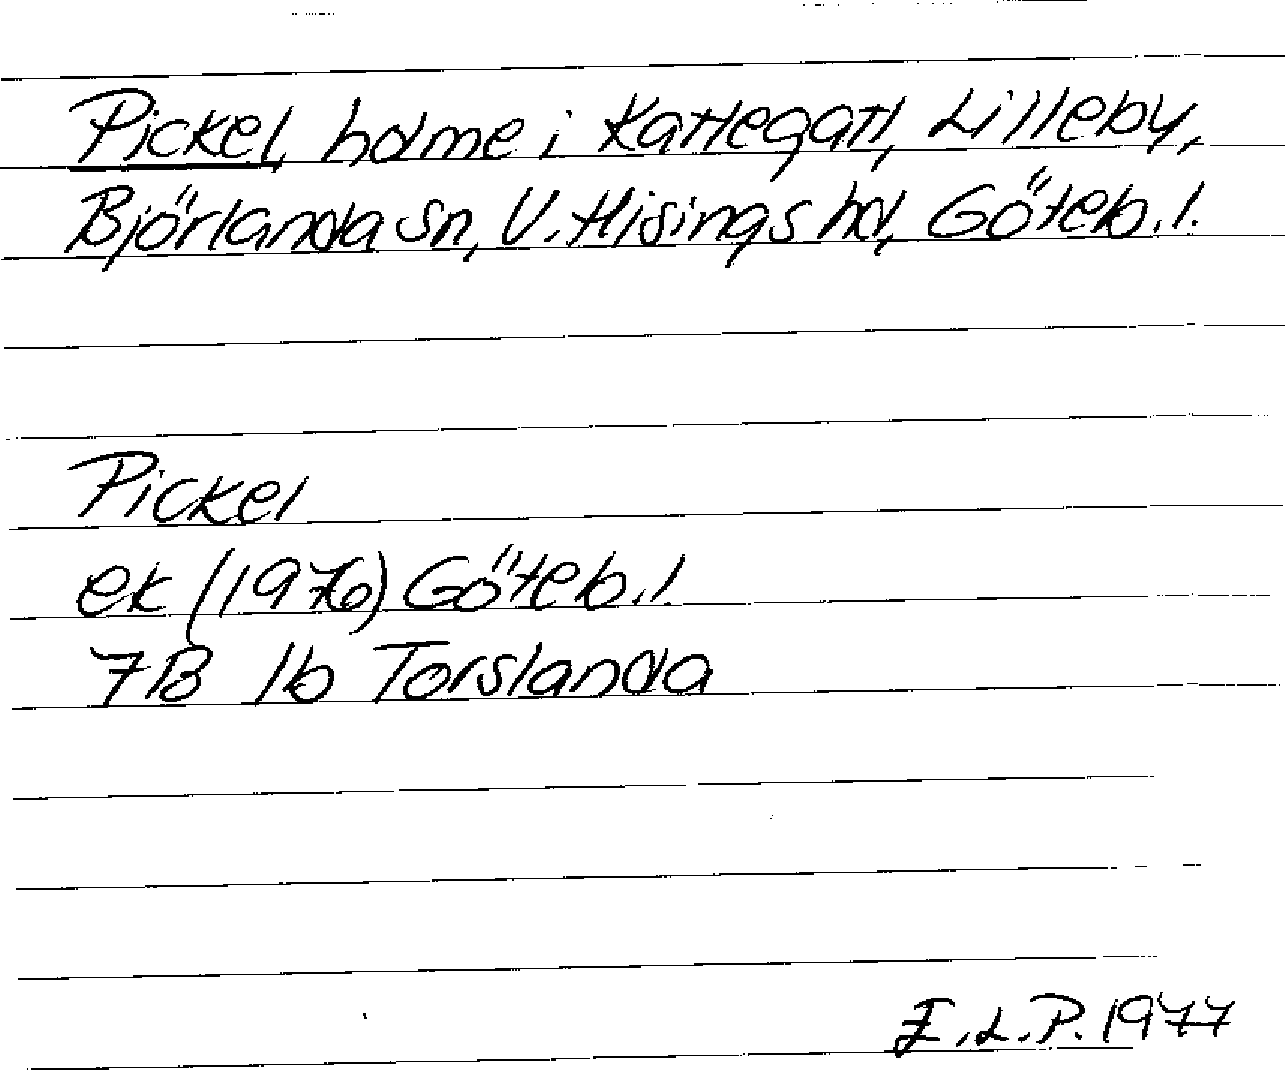 Pickel, holme i Kattegatt, Lilleby,
Björlanda sn, V. Hisings hd, Göteb.l.
Pickel
ek (1976) Göteb.l.
7B 1b Torslanda
E.L.P. 1977